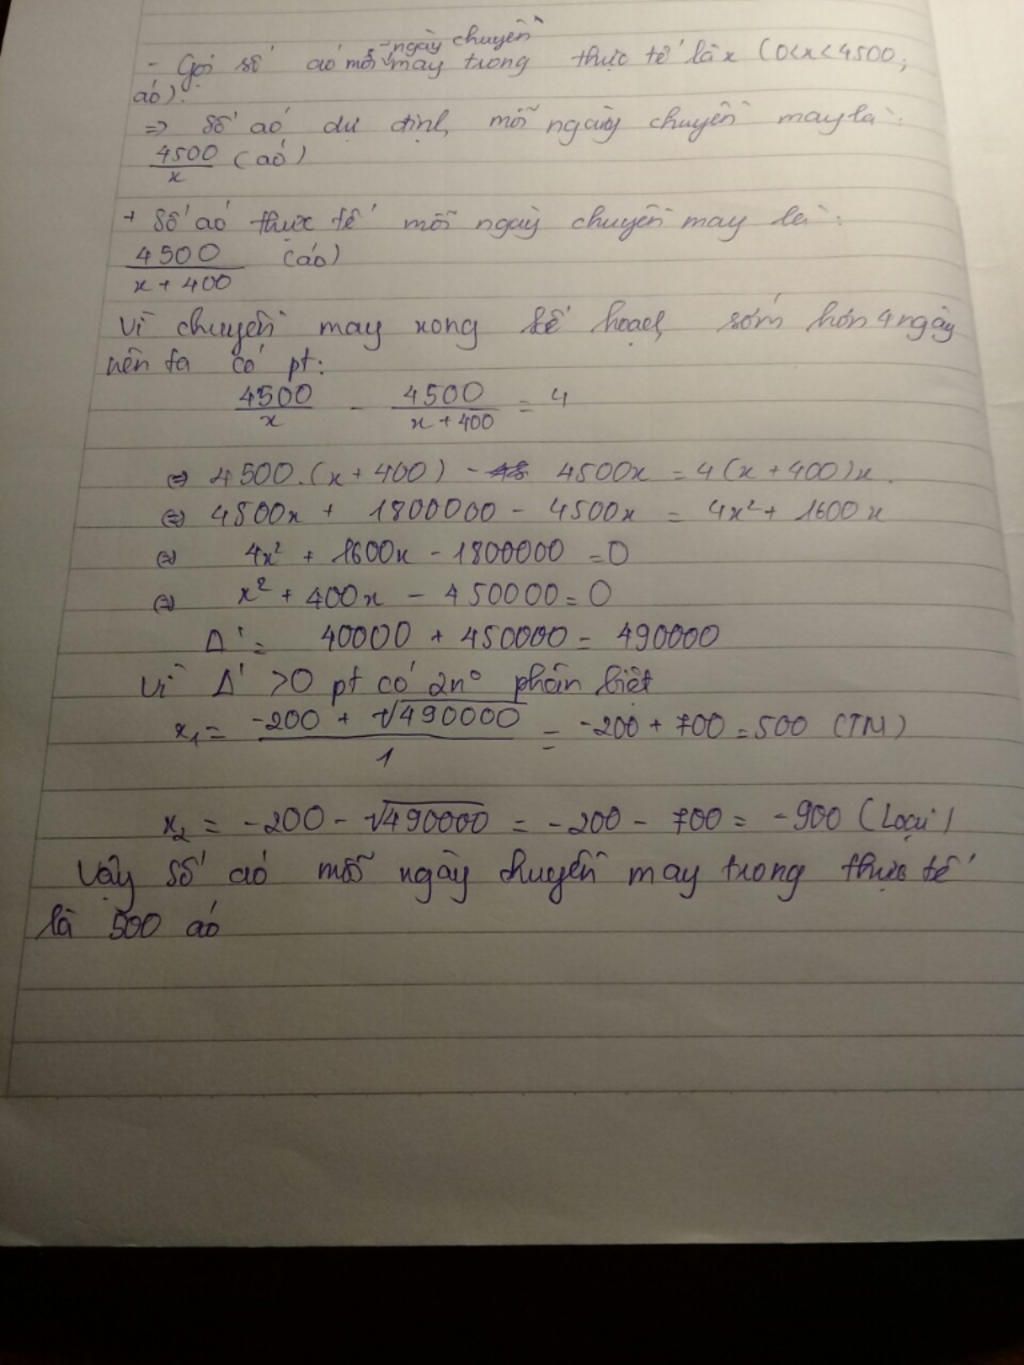 ngày chuyền
- Gọi số áo mỗi may trong thực tế là x (0<x<4500;
áo).
=> Số áo dự định, mỗi ngày chuyền may là:
4500/x (áo)
+ Số áo thực tế mỗi ngày chuyền may là:
4500/(x + 400) (áo)
Vì chuyền may xong kế hoạch sớm hơn 4 ngày
nên ta có pt:
4500/x - 4500/(x + 400) = 4
<=> 4500.(x + 400) - 4500x = 4(x + 400)x.
<=> 4500x + 1800000 - 4500x = 4x² + 1600x
<=> 4x² + 1600x - 1800000 = 0
<=> x² + 400x - 450000 = 0
Δ' = 40000 + 450000 = 490000
Vì Δ' >0 pt có 2n° phân biệt
x₁ = (-200 + √490000)/1 = -200 + 700 = 500 (TM)
x₂ = -200 - √490000 = -200 - 700 = -900 (Loại)
Vậy số áo mỗi ngày chuyền may trong thực tế
là 500 áo